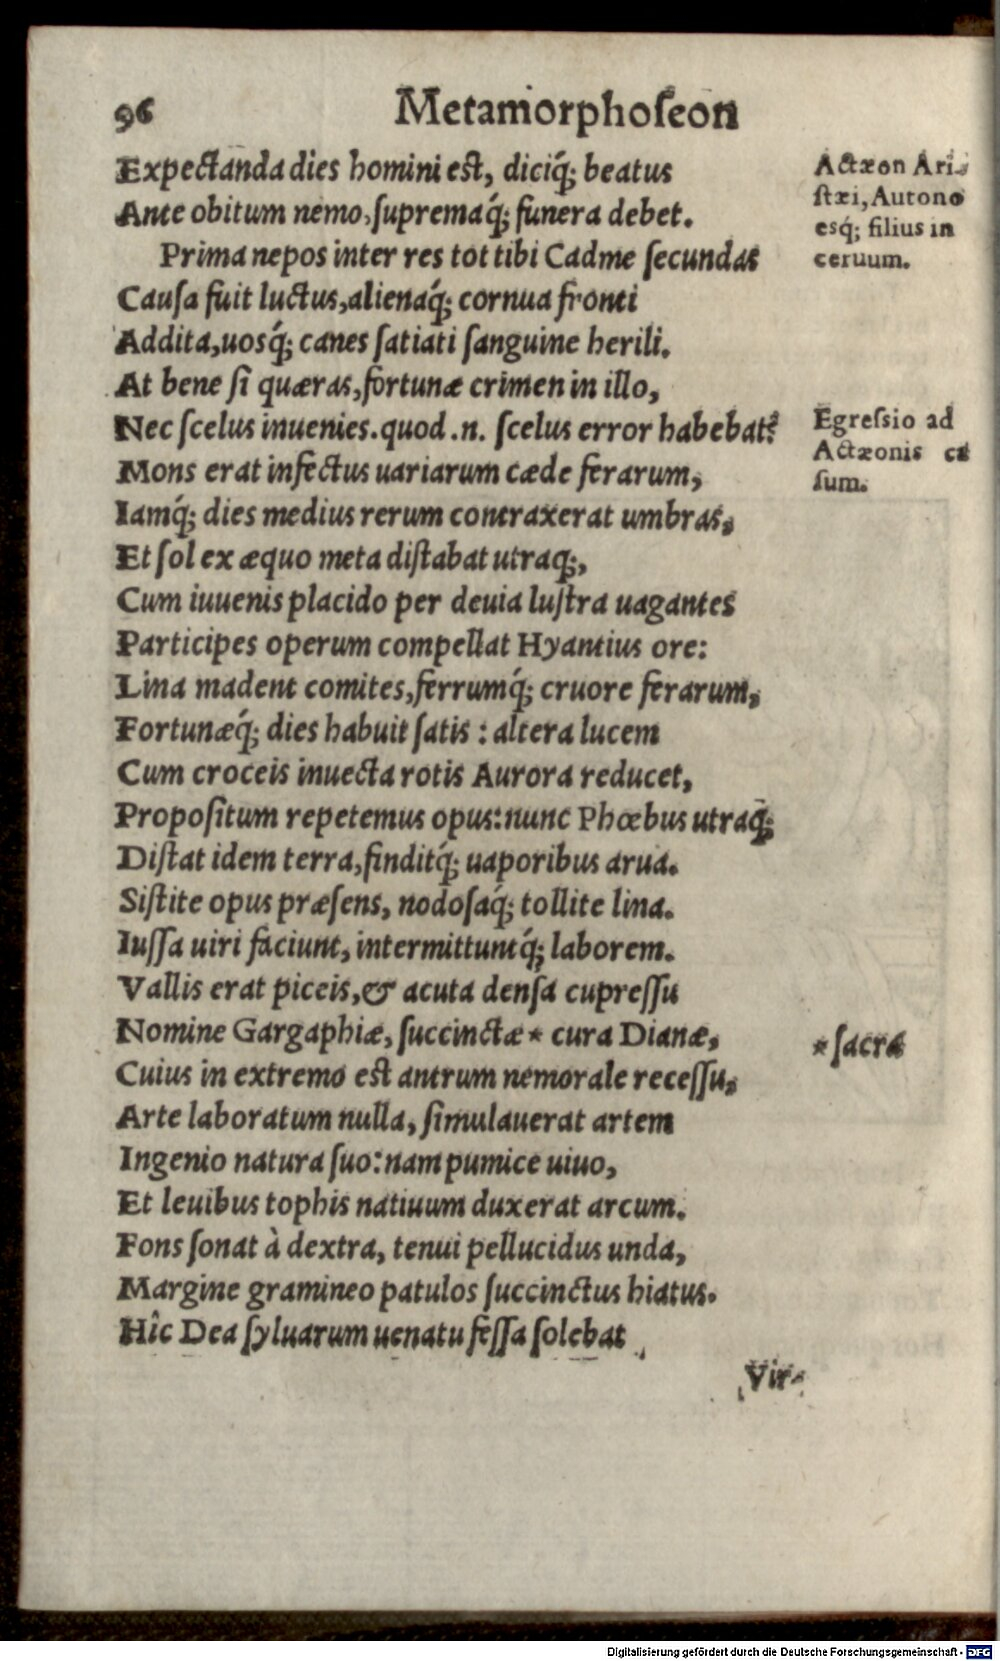 96 Metamorphoſeon
Expectanda dies homini eſt, diciq́; beatus
Ante obitum nemo, ſupremaq́; funera debet.
Prima nepos inter res tot tibi Cadme ſecundas
Cauſa fuit luctus, alienaq́; cornua fronti
Addita, uosq́; canes ſatiati ſanguine herili.
At bene ſi quæras, fortunæ crimen in illo,
Nec ſcelus inuenies. quod .n. ſcelus error habebat?
Mons erat infectus uariarum cæde ferarum,
Iamq́; dies medius rerum contraxerat umbras,
Et ſol ex æquo meta diſtabat utraq;,
Cum iuuenis placido per deuia luſtra uagantes
Participes operum compellat Hyantius ore:
Lina madent comites, ferrumq́; cruore ferarum,
Fortunæq́; dies habuit ſatis : altera lucem
Cum croceis inuecta rotis Aurora reducet,
Propoſitum repetemus opus: nunc Phœbus utraq́;
Diſtat idem terra, finditq́; uaporibus arua.
Siſtite opus præſens, nodoſaq́; tollite lina.
Iuſſa uiri faciunt, intermittuntq́; laborem.
Vallis erat piceis, & acuta denſa cupreſſu
Nomine Gargaphiæ, ſuccinctæ * cura Dianæ,
Cuius in extremo eſt antrum nemorale receſſu,
Arte laboratum nulla, ſimulauerat artem
Ingenio natura ſuo: nam pumice uiuo,
Et leuibus tophis natiuum duxerat arcum.
Fons ſonat à dextra, tenui pellucidus unda,
Margine gramineo patulos ſuccinctus hiatus.
Hîc Dea ſyluarum uenatu feſſa ſolebat
Vir-
Actæon Ari-
ſtæi, Autono
esq́; filius in
ceruum.
Egreſsio ad
Actæonis ca
ſum.
* ſacra
Digitalisierung gefördert durch die Deutsche Forschungsgemeinschaft - DFG